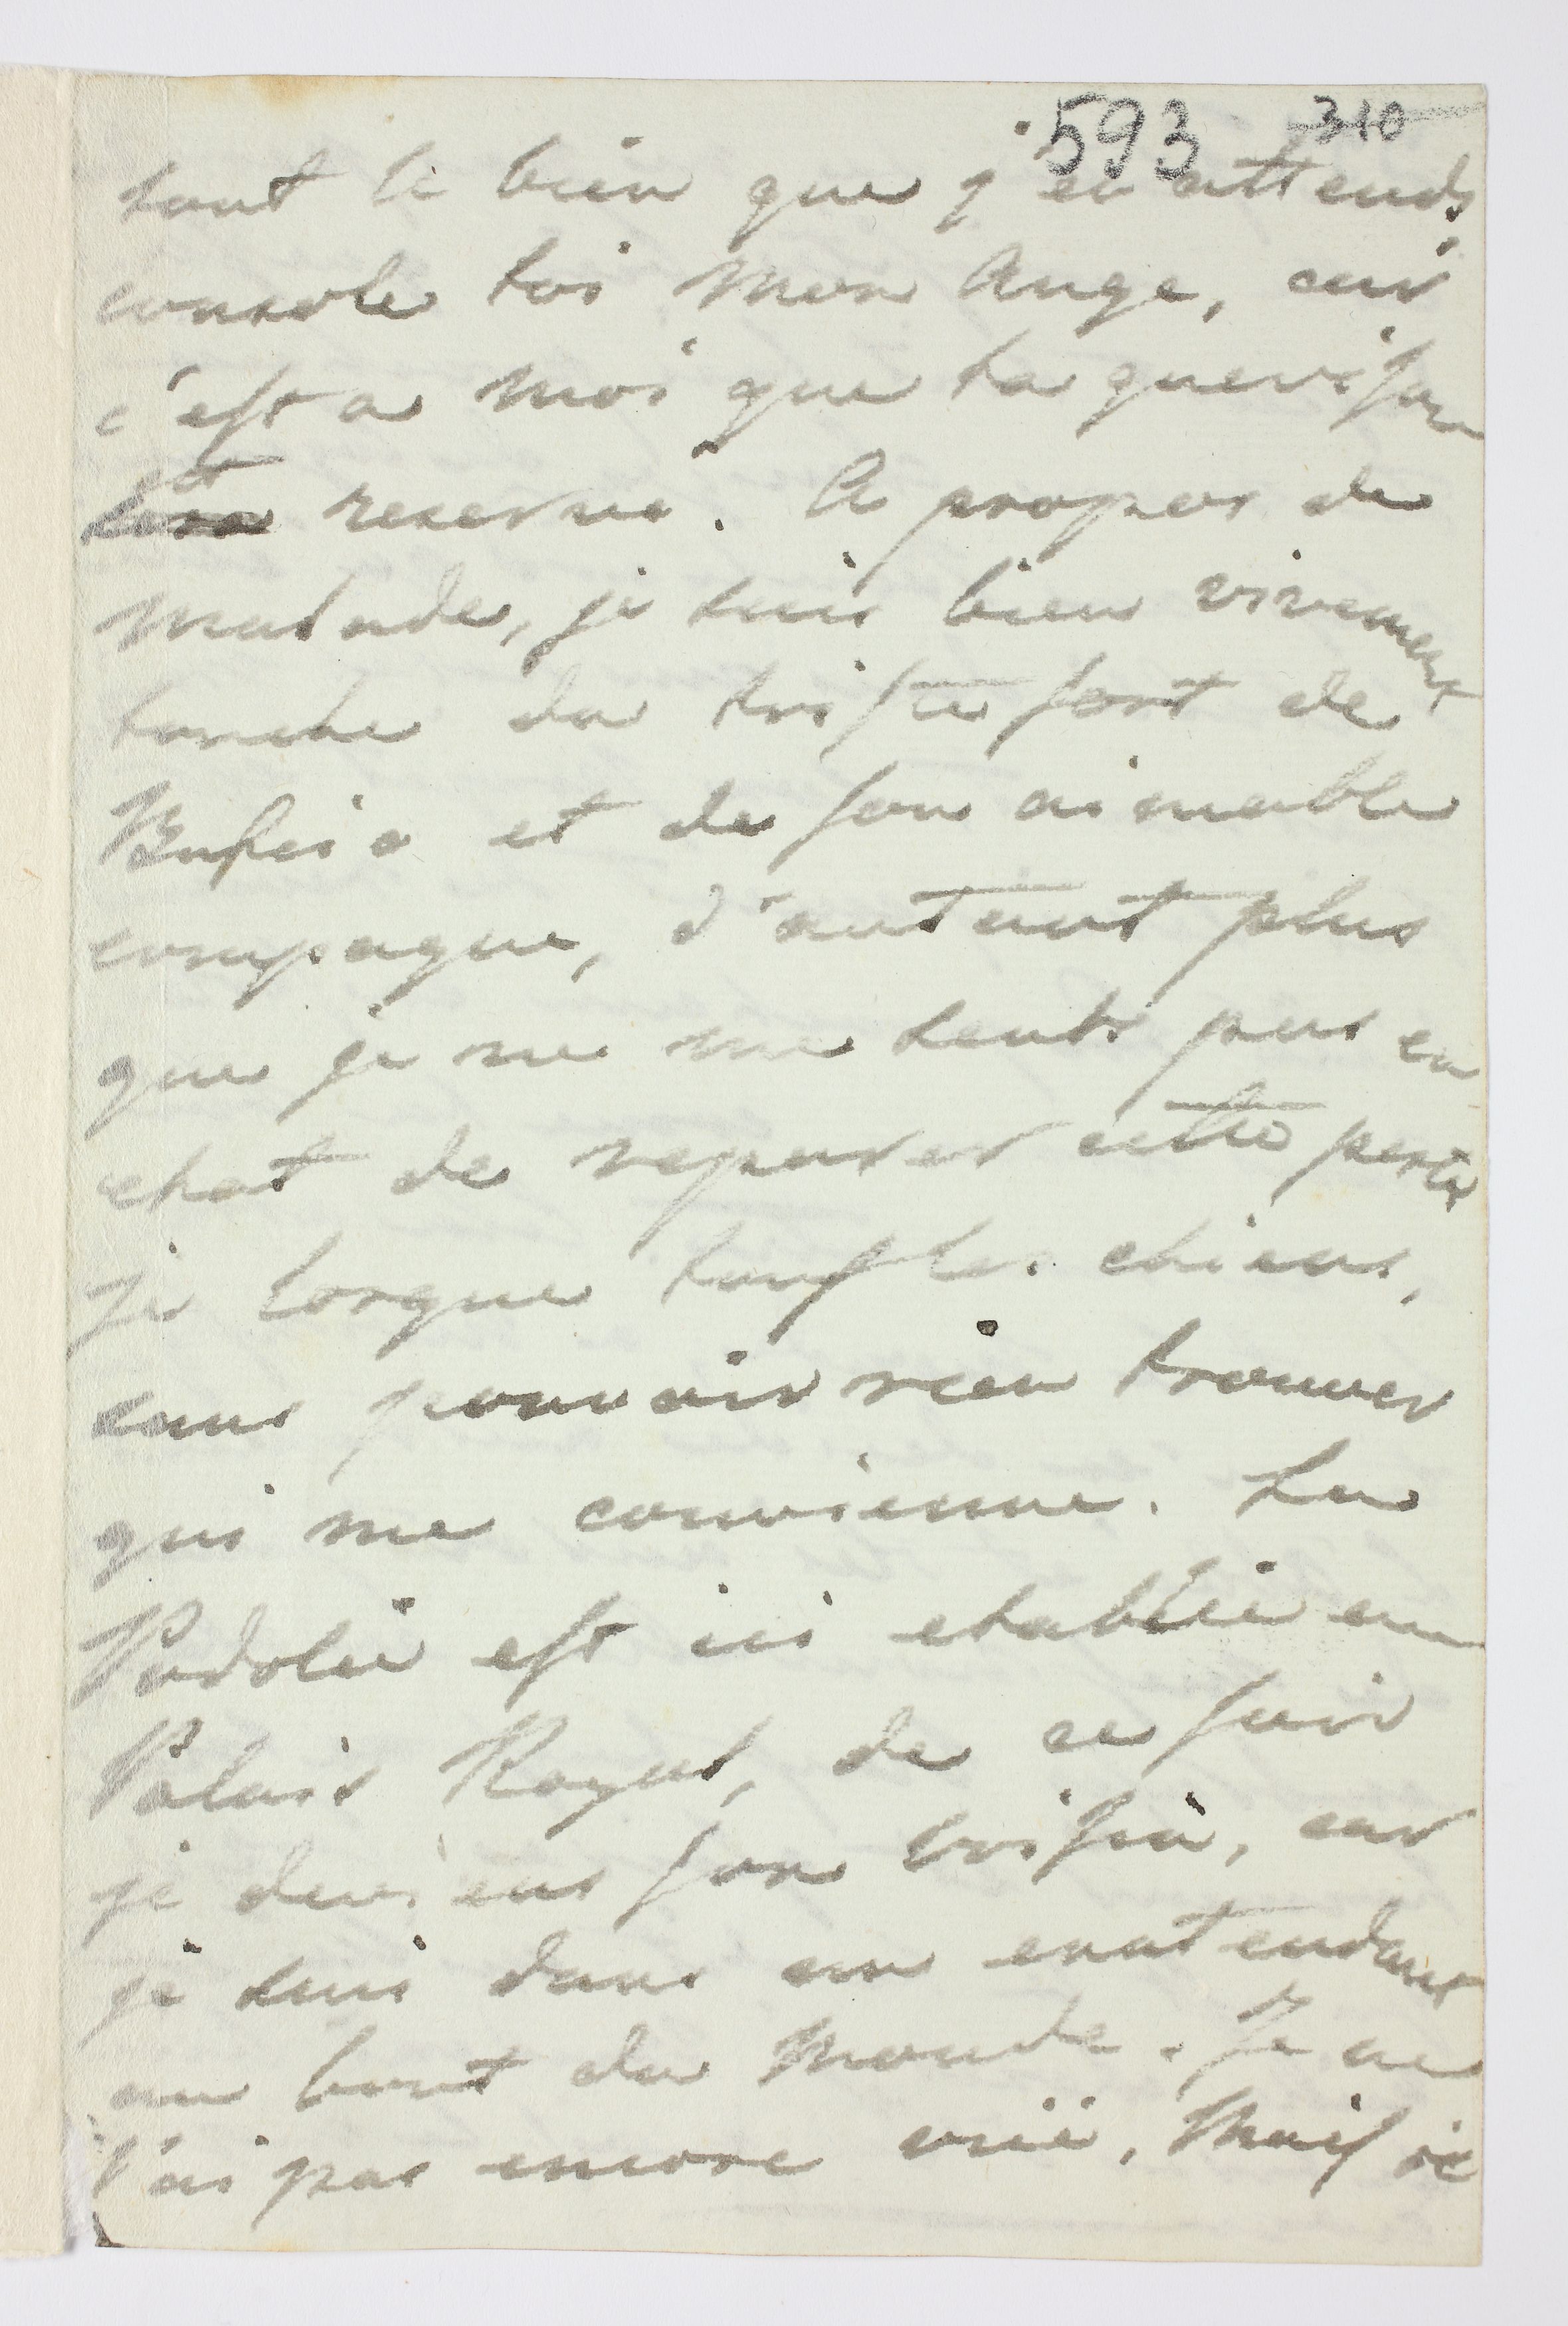 593 310
tout le bien que j'en attends,
console toi mon Ange, car
c'est a moi que ta guerison
est reservée. A propos de
malade, je suis bien vivement
touche du triste sort de
et de son aimable
compagne, d'autant plus
que je ne me sents pas en
etat de reparer cette perte
je lorgne tous les chiens,
sans pouvoir rien trouver
qui me convienne. La
Podolie est ici etablie au
Palais Royal, de ce soir
je deviens son voisin, car
je suis dans un enattendant
au bout du monde. Je ne
l'ai pas encore vuë, Mais je